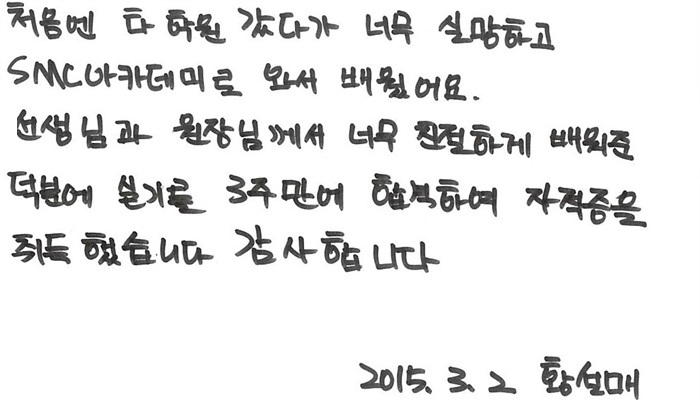 처음엔 타 학원 갔다가 너무 실망하고
SMC아카데미로 와서 배웠어요.
선생님과 원장님께서 너무 친절하게 배워준
덕분에 실기를 3주만에 합격하여 자격증을
취득 했습니다 감사합니다
2015. 3. 2 황선매